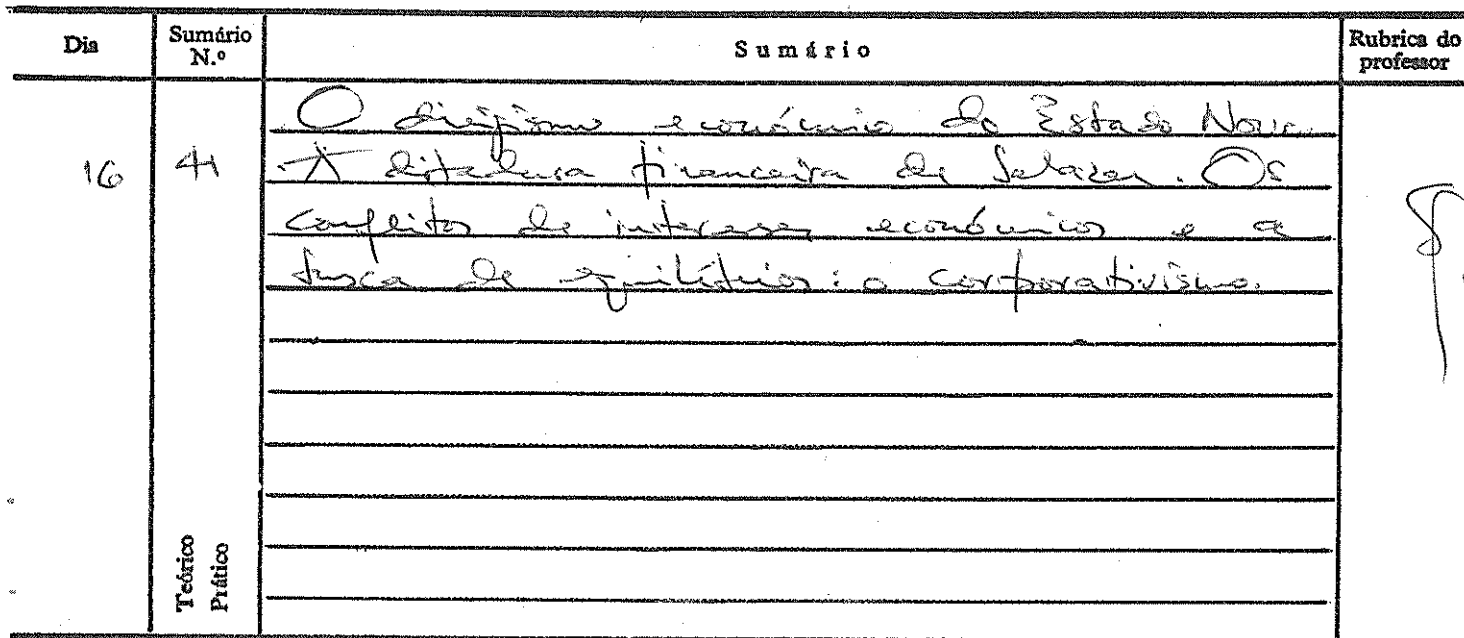 Dia
Sumário N.º
Sumário
Rubrica do professor
16
41
O dirigismo económico do Estado Novo.
A ditadura financeira de Salazar. Os
conflitos de interesses económicos e a
busca de equilíbrios: o corporativismo.
Teórico
Prático